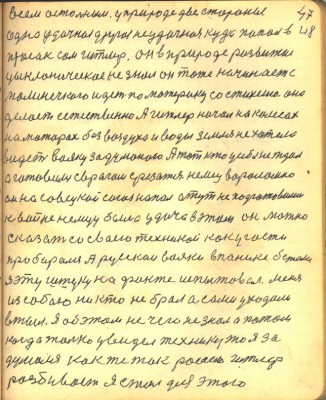 всем остальным. у природе две стороны 47
одна удачная другая неудачная куда попал в 48
просак сам гитлер. он в природе развитие
цыклоническое не знал он тоже начинает с
малинечкого идет по матерыку со стихией она
делает естественно А гитлер начал на колесах
на моторах без воздуха и воды земля не хотела
видеть войну за дармоного А тот кто
готовили с врагом срезатся немец вораломно
он на советский союз напал а тут не подготовлины
к войне немцу было удача в этом он можно
сказать со своею техникой как у гости
пробирался А русския вояки в панике бежали
я эту штуку на факте испытовал. меня
из собою никто не брал а сами уходили
в тыл. Я об этом не чего не знал а потом
когда только увидел технику то я за
думался как же так россею гитлер
розбивает я стал для этого